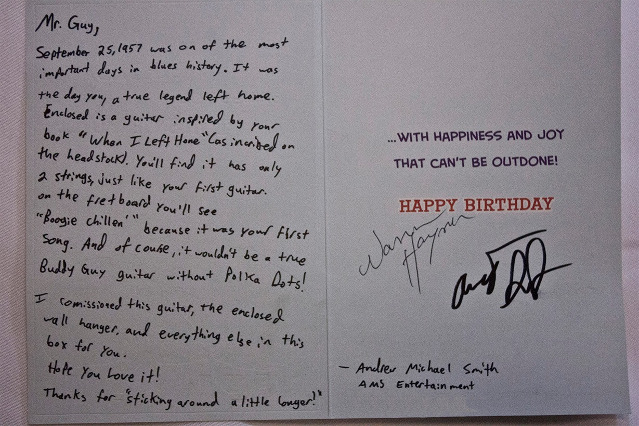 Mr. Guy,
September 25, 1957 was on of the most
important days in blues history. It was
the day you, a true legend left home.
Enclosed is a guitar inspired by your
book "When I Left Home" (as on
the headstock). You'll find it has only
2 strings, just like your first guitar.
on the fretboard you'll see
"Boogie chillen'" because it was your first
song. And of course, it wouldn't be a true
Buddy Guy guitar without Polka Dots!
I comissioned this guitar, the enclosed
wall hanger, and everything else in this
box for you.
Hope you Love it!
Thanks for "sticking around a little longer!"
...WITH HAPPINESS AND JOY
THAT CAN'T BE OUTDONE!
HAPPY BIRTHDAY
Warren
Haynes
— Andrew Michael Smith
AMS Entertainment